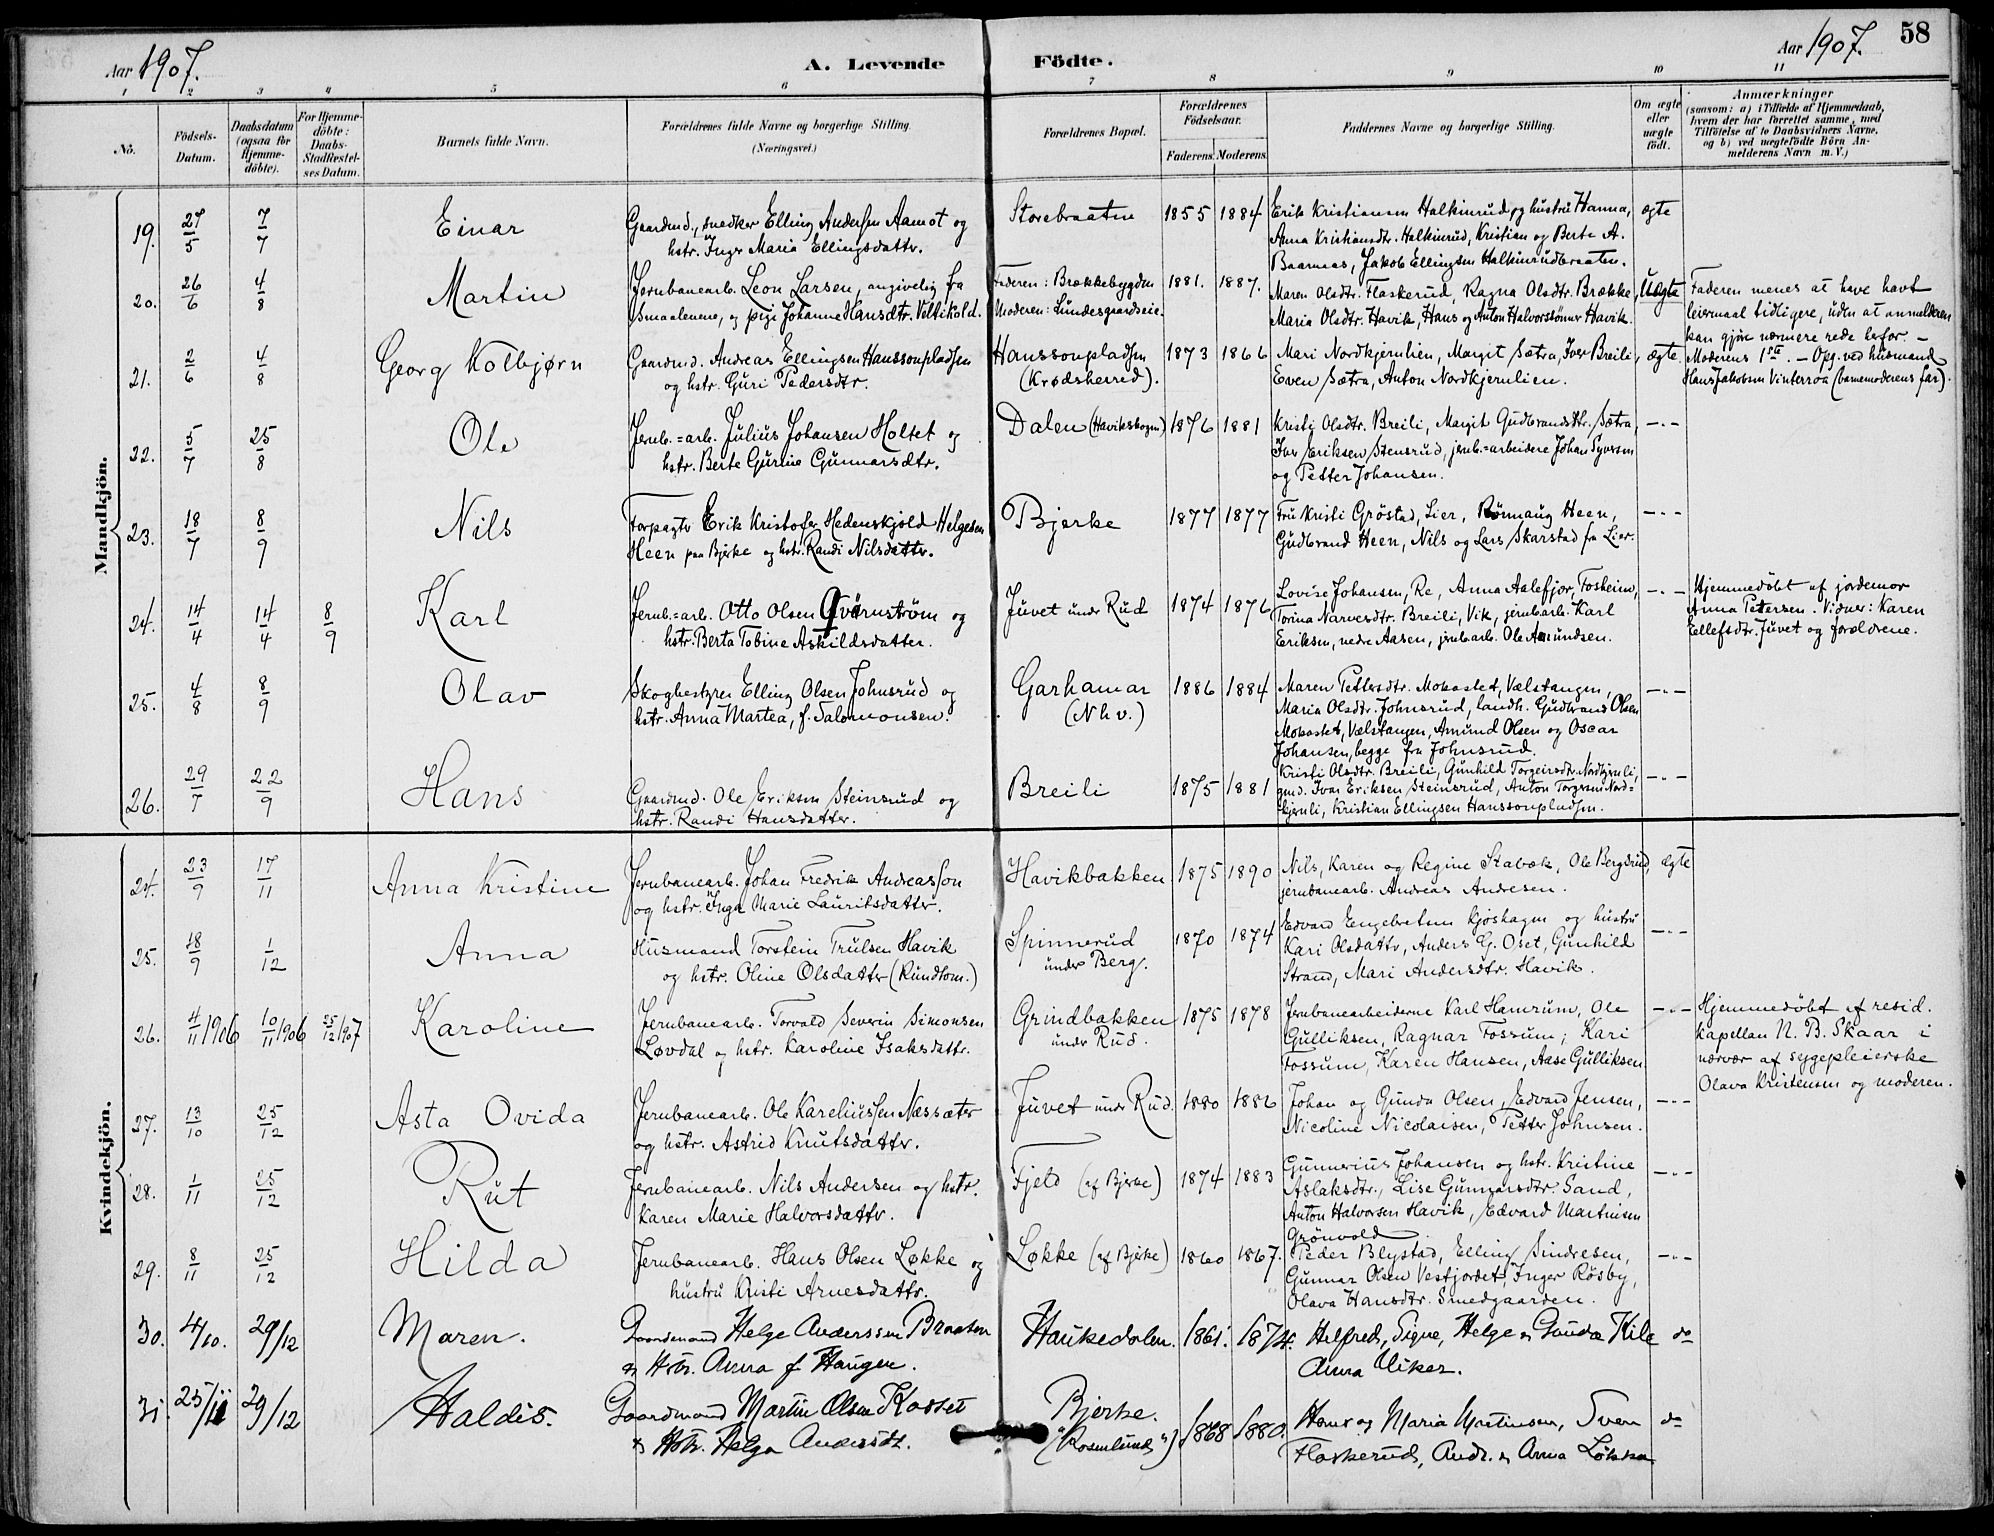 58
Aar 1907.
A. Levende Födte.
Aar 1907.
1 2 3 4 5 6 7 8 9 10 11
No.
Födsels-Datum.
Daabsdatum (ogsaa for Hjemme-döbte).
For Hjemme-döbte: Daabs-Stadfæstel-ses Datum.
Barnets fulde Navn.
Forældrenes fulde Navne og borgerlige Stilling.
(Næringsvei.)
Forældrenes Bopæl.
Forældrenes Födselsaar.
Faderens. Moderens.
Faddernes Navne og borgerlige Stilling.
Om ægte eller uægte födt.
Anmærkninger
(saasom: a) i Tilfælde af Hjemmedaab,
hvem der har forrettet samme, med
Tilföielse af to Daabsvidners Navne,
og b) ved uægtefödte Börn An-
melderens Navn m. V.)
Mandkjön.
19. 27/5 7/7 Einar
Gaardmd., snedker Elling Andersen Aamot og
hstr. Inger Maria Ellingsdattr.
Storebraaten 1855 1884
Erik Kristiansen Halkinrud og hustru Hanna,
Anna Kristiansdtr. Halkinrud, Kristian og Berte A.
Baarnas, Jakob Ellingsen Halkinrudbraaten.
ægte
20. 26/6 4/8 Martin
Jernbanearb. Leon Larsen, angivelig fra
Smaalenene, og pige Johanne Hansdtr. Veltikold.
Faderen: Brækkebygden
Moderen: Lundesgaardseie.
1881. 1887.
Maren Olsdtr. Flaskerud, Ragna Olsdtr. Brække,
Maria Olsdtr. Havik, Hans og Anton Halvorsönner Havik.
Uægte
Faderen menes at have havt
leiermaal tidligere, uden at anmelderen
kan gjøre nærmere rede herfor. -
Moderens 1ste. - Opg. ved husmand
Hans Jakobsen Vinterroa (barnemoderens far).
21. 2/6 4/8 Georg Kolbjørn
Gaardmd. Andreas Ellingsen Hanssonpladsen
og hstr. Guri Pedersdtr.
Hanssonpladsen
(Krødsherred).
1873 1866
Mari Nordkjernlien, Margit Sætra, Iver Breili,
Even Sætra, Anton Nordkjernlien.
ægte
22. 5/7 25/8 Ole
Jernb.=arb. Julius Johansen Holtet og
hstr. Berte Gurine Gunnarsdtr.
Dalen (Havikskogen) 1876 1881
Kristi Olsdtr. Breili, Margit Gudbrandsdtr. Sætra,
Iver Eriksen Stensrud, jernb.=arbeidere Johan Syversen
og Petter Johansen.
-"-
23. 18/7 8/9 Nils
Forpagter Erik Kristofer Hedenskjold Helgesen
Heen paa Bjerke og hstr. Randi Nilsdattr.
Bjerke 1877 1877
Fru Kristi Gröstad, Lier, Rönnaug Heen,
Gudbrand Heen, Nils og Lars Skarstad fra Lier.
-"-
24. 14/4 14/4 8/9 Karl
Jernb.=arb. Otto Olsen Qvarnström og
hstr. Berta Tobine Askildsdatter.
Juvet under Rud 1874 1876
Lovise Johansen, Re, Anna Aslefjor, Fosheim,
Torina Narvesdtr. Breili, Vik, jernbarb. Karl
Eriksen, nedre Aasen, jernbarb. Ole Amundsen.
-"-
Hjemmedöbt af jordemor
Anna Pettersen. Vidner: Karen
Ellefsdtr. Juvet og forældrene.
25. 4/8 8/9 Olav
Skogbestyrer Elling Olsen Johnsrud og
hstr. Anna Martea, f. Salomonsen.
Garhamar
(Nhv.)
1886 1884
Maren Pettersdtr. Mobastet, Vælstangen,
Maria Olsdtr. Johnsrud, landh. Gudbrand Olsen
Mobastet, Vælstangen, Amund Olsen og Oscar
Johansen, begge fra Johnsrud.
-"-
26. 29/7 22/9 Hans
Gaardmd. Ole Eriksen Steinsrud og
hstr. Randi Hansdatter.
Breili 1875 1881
Kristi Olsdtr. Breili, Gunhild Torgeirsdtr. Nordkjernli,
gmd. Iver Eriksen Steinsrud, Anton Torgersen Nord=
kjernli, Kristian Ellingsen Hanssonpladsen.
-"-
Kvindekjön.
24. 23/9 17/11 Anna Kristine
Jernbanearb. Johan Fredrik Andreassen
og hstr. Inga Marie Lauritsdatter.
Havikbakken 1875 1890
Nils, Karen og Regine Stabæk, Ole Bergsrud,
jernbanearb. Andreas Andresen.
ægte
25. 18/9 1/12 Anna
Husmand Torstein Trulsen Havik
og hstr. Oline Olsdatter (Rundtom.)
Spinnerud
under Berg.
1870 1874
Edvard Engebretsen Kjoshagen og hustru
Kari Olsdattr, Anders G. Oset, Gunhild
Strand, Mari Andersdtr. Havik.
-"-
26. 4/11 1906 10/11 1906 25/12 1907 Karoline
Jernbanearb. Torvald Severin Simonsen
Løvdal og hstr. Karoline Isaksdattr.
Grindbakken
under Rud.
1875 1878
Jernbanearbeiderne Karl Hamrum, Ole
Gulliksen, Ragnar Fossum; Kari
Fossum, Karen Hansen, Aase Gulliksen
-"-
Hjemmedöbt af resid.
kapellan N. B. Skaar i
nærvær af sygepleierske
Olava Kristensen og moderen.
27. 13/10 25/12 Asta Ovida
Jernbanearb. Ole Kareliussen Næssæter
og hstr. Astrid Knutsdattr.
Juvet under Rud. 1880 1886
Johan og Gunda Olsen, Edvard Jensen,
Nicoline Nicolaisen, Petter Johnsen.
-"-
28. 1/11 25/12 Rut
Jernbanearb. Nils Andersen og hstr.
Karen Marie Halvorsdattr.
Fjeld (af Bjerke) 1874 1883
Gunnerius Johansen og hstr. Kristine
Aslaksdtr., Lise Gunnarsdtr. Sand,
Anton Halvorsen Havik, Edvard Martinsen
Grönvold
-"-
29. 8/11 25/12 Hilda
Jernbanearb. Hans Olsen Løkke og
hustru Kristi Arnesdattr.
Løkke (af Bjerke) 1860 1867.
Peder Blystad, Elling Sindresen,
Gunnar Olsen Vestjordet, Inger Rösby,
Olava Hansdtr. Smedgaarden.
-"-
30. 4/10. 29/12 Maren.
Gaardmand Helge Anderssen Braaten
og Hstr. Anna f. Haugen.
Haukedalen. 1861. 1874.
Helfred, Signe, Helge og Gunda Kile
Anna Viker.
do
31. 25/11 29/12 Haldis.
Gaardmand Martin Olsen Kastet
og Hstr. Helga Andersdt.
Bjerke.
("Rosenlund")
1868 1880.
Hans og Maria Martinsen, Sven
Flaskerud, Andr. og Anna Løkka
do